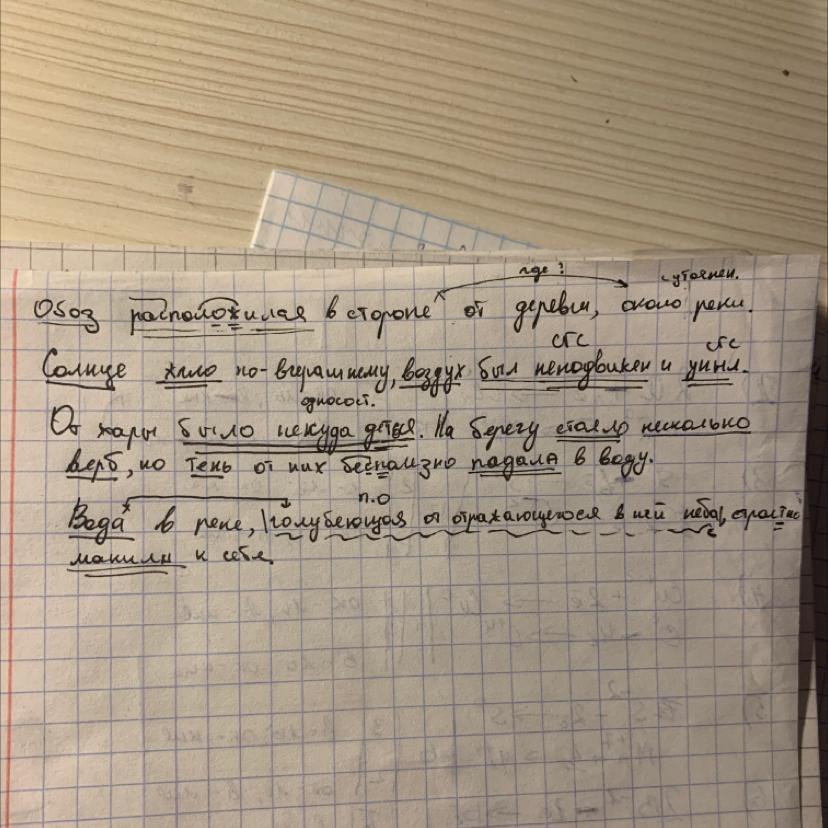 где? уточнен.
Обоз расположилая в стороне от деревни, около реки.
СГС СГС
Солнце жгло по-вчерашнему, воздух был неподвижен и уныл.
односост.
От жары было некуда деться. На берегу стояло несколько
верб, но тень от них беспользно падала в воду.
п.о
Вода в реке, голубеющая от отражающегося в ней неба, страстно
манила к себе.